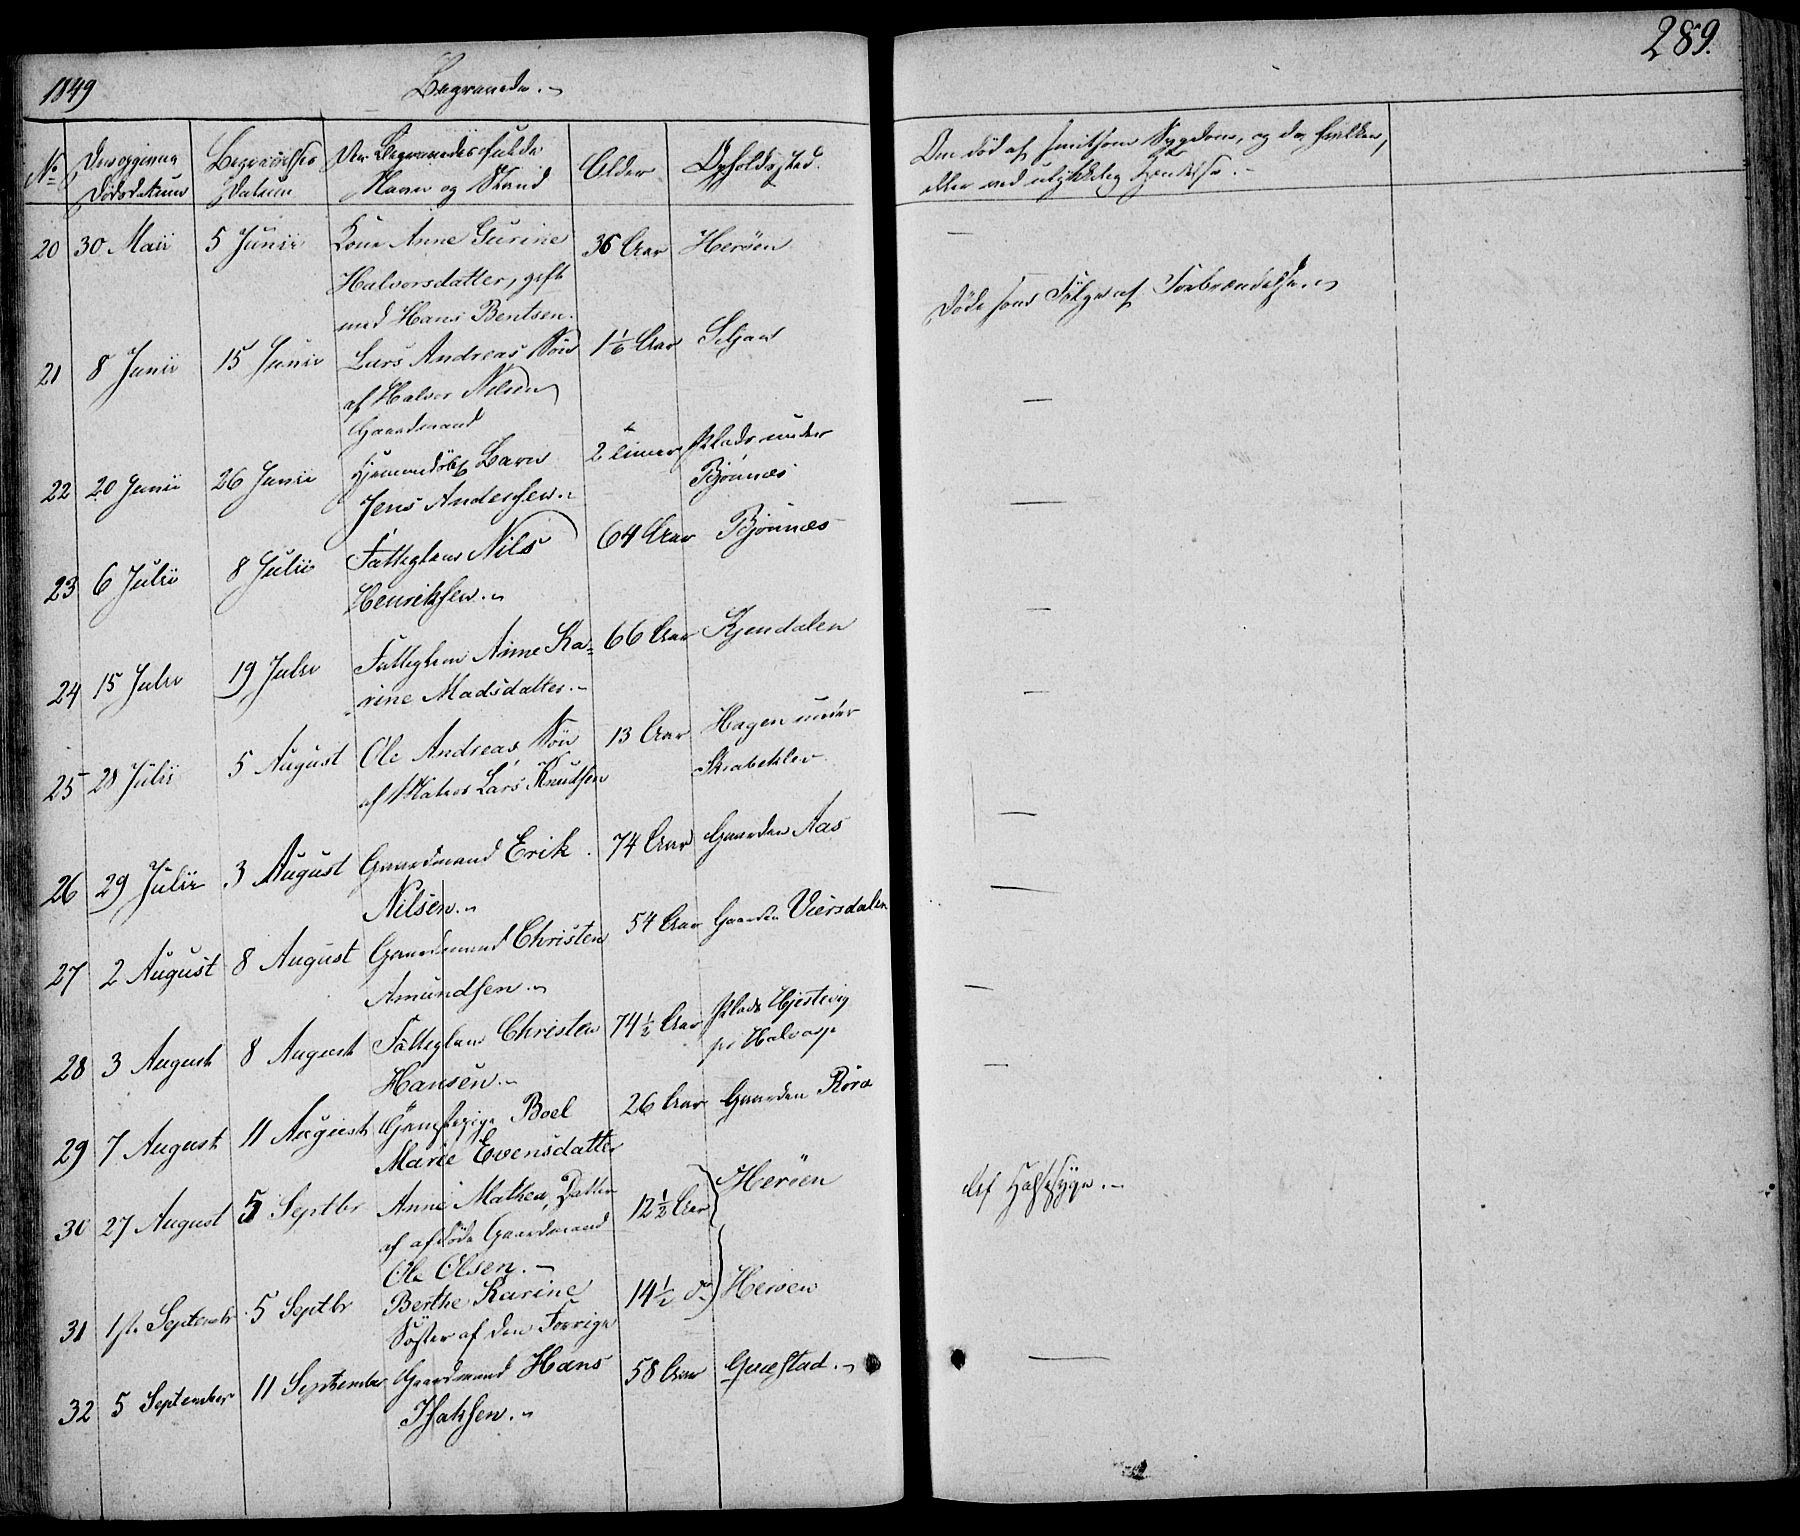 289.
1849
Begravede.
No
Den opgivne
Dødsdatum
Begravelses
Datum
Den Begravedes fulde
Navn og Stand
Alder
Opholdssted.
Om død af smitsom Sygdom, og da hvilken,
eller ved ulykkelig Hændelse.
20 30 Maii 5 Junii Kone Anne Gurine 36 Aar Herøen
Halvorsdatter, gift
med Hans Bentsen.
Døde som Følge af Forbrændelse.
21 8 Junii 15 Junii Lars Andreas Søn 1 1/6 Aar Seljan
af Halvor Nilsen
Gaardmand
22 20 Junii 26 Junii Hjemmedøbt Barn 2 Timer Plads under
Jens Andersen. Bjønnes
23 6 Julii 8 Julii Fattiglem Nils 64 Aar Bjønnes
Henriksen.
24 15 Juli 19 Juli Fattiglem Anne Ka= 66 Aar Kjendalen
rine Madsdatter.
25 28 Julii 5 August Ole Andreas Søn 13 Aar Hagen under
af Matros Lars Knudsen Skrabeklev
26 29 Julii 3 August Gaardmand Erik 74 Aar Gaarden Aas
Nilsen.
27 2 August 8 August Gaardmand Christen 54 Aar Gaarden Viersdalen
Amundsen.
28 3 August 8 August Fattiglem Christen 74 1/2 Aar Plads
Hansen. Halvarp
29 7 August 11 August Boel 26 Aar Gaarden Røra
Marie Evensdatter
30 27 August 5 Septbr Anne Mathea, Datter 12 1/2 Aar Herøen
af afdøde Gaardmand
Ole Olsen.
Af Halssyge.
31 1ste Septembr 5 Septbr Berthe Karine 14 1/2 do Herøen
Søster af den Forrige
32 5 September 11 September Gaardmand Hans 58 Aar Graastad.
Isaksen.